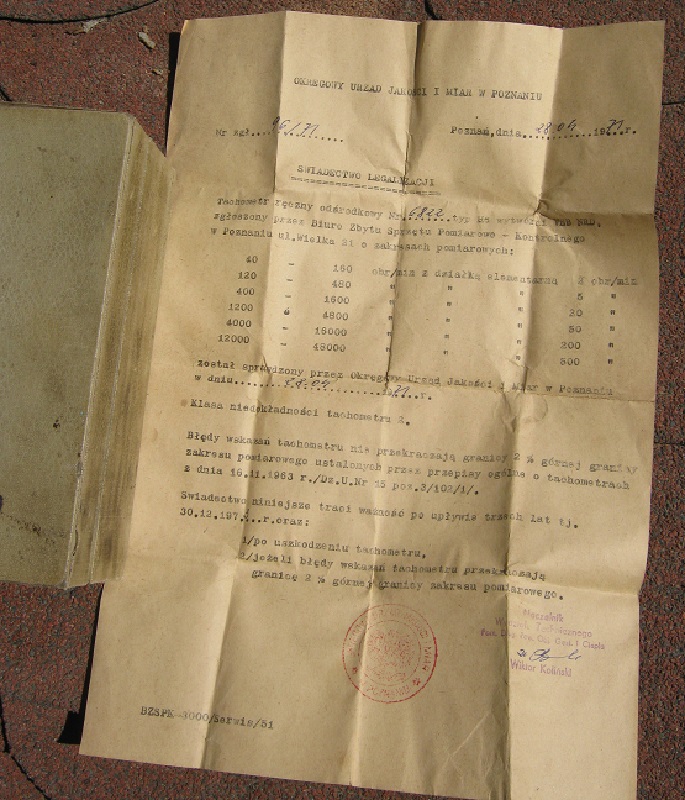 OKRĘGOWY URZĄD JAKOŚCI I MIAR W POZNANIU
Nr zgł.... 96/71 ......
Poznań,dnia 28.04 1971 r.
ŚWIADECTWO LEGALIZACJI
Tachometr ręczny odśrodkowy Nr. 6822 typ Hs wytwórni VEB NRD,
zgłoszony przez Biuro Zbytu Sprzętu Pomiarowo - Kontrolnego
w Poznaniu ul.Wielka 21 o zakresach pomiarowych:
40 - 160 obr/min z działką elementarną 2 obr/min
120 - 480 " " " 5 "
400 - 1600 " " " 20 "
1200 - 4800 " " " 50 "
4000 - 16000 " " " 200 "
12000 - 48000 " " " 500 "
Został sprawdzony przez Okręgowy Urząd Jakości i Miar w Poznaniu
w dniu....... 28.04 ........1971.r.
Klasa niedokładności tachometru 2.
Błędy wskazań tachometru nie przekraczają granicy 2 % górnej granicy
zakresu pomiarowego ustalonych przez przepisy ogólne o tachometrach
z dnia 16.11.1963 r./Dz.U.Nr 15 poz.3/102/1/.
Świadectwo niniejsze traci ważność po upływie trzech lat tj.
30.12.197...r.oraz:
1/po uszkodzeniu tachometru,
2/jeżeli błędy wskazań tachometru przekraczają
granicę 2 % górnej granicy zakresu pomiarowego.
Naczelnik
Wiktor Koliński
BZSPK-3000/Serwis/51